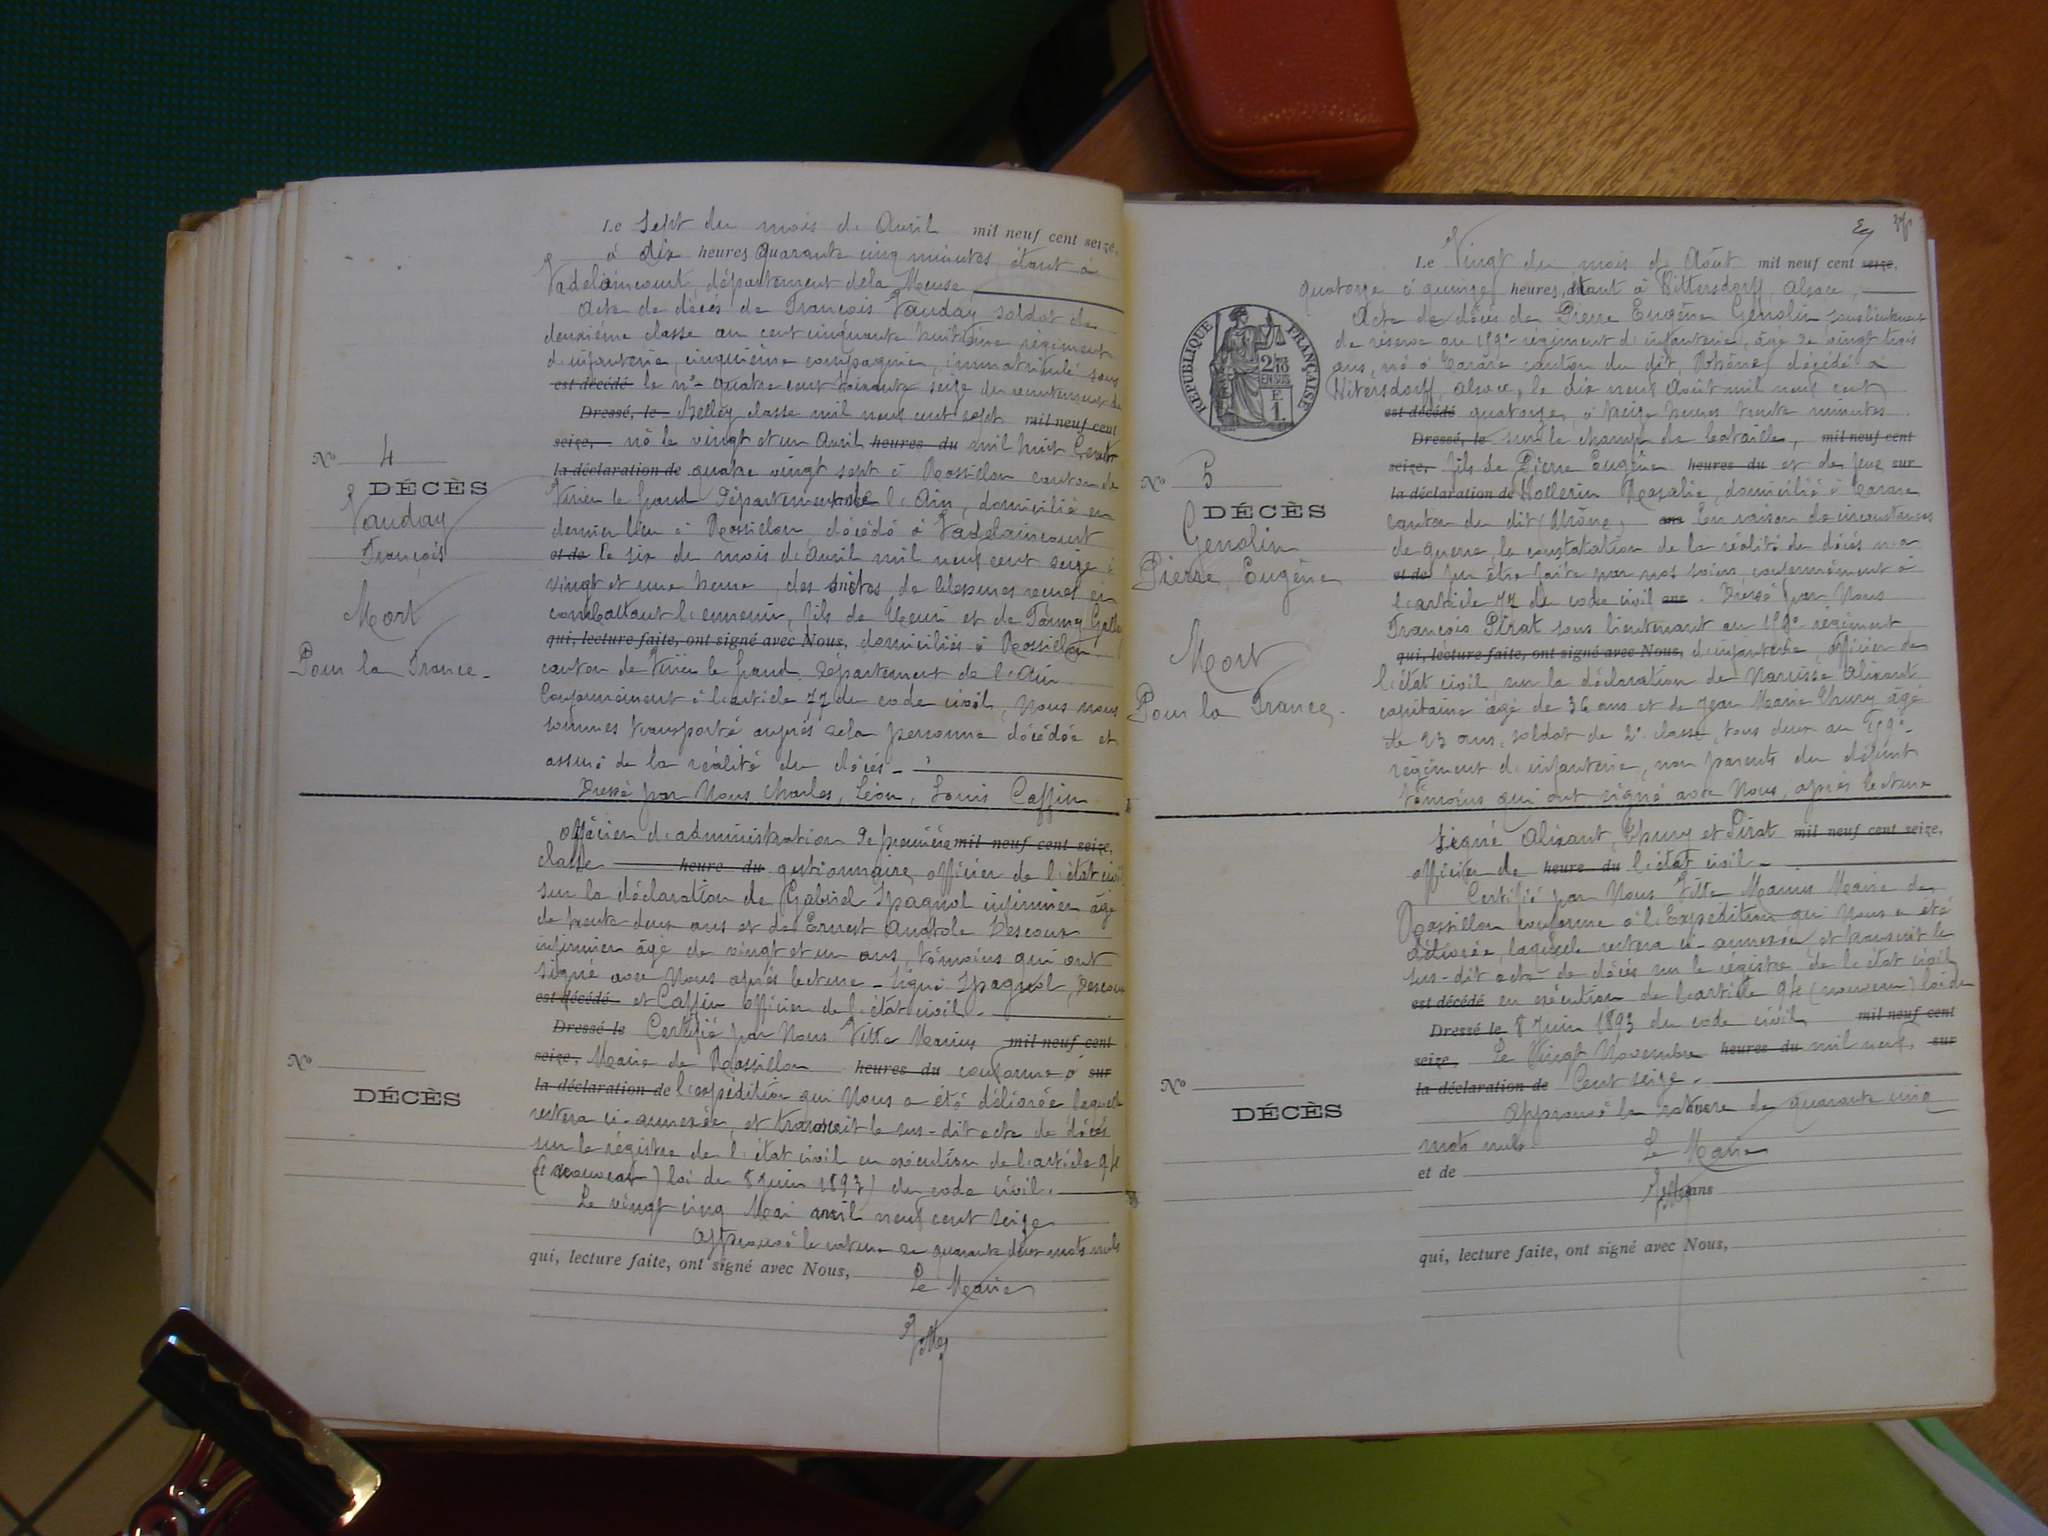 Le Sept du mois d'Avril mil neuf cent seize,
à dix heures quarante cinq minutes étant à
Vadelaincourt, département de la Meuse,
Acte de décès de François Vauday soldat de
deuxième classe au cent cinquante huitième régiment
d'infanterie, cinquième compagnie, immatriculé sous
est décédé le n° quatre cent soixante seize du recrutement de
Dressé, le Belley classe mil neuf cent sept mil neuf cent
seize, né le vingt et un Avril heures du mil huit Cent
la déclaration de quatre vingt sept à Rossillon canton de
Virieu le Grand Département de l'Ain, domicilié en
dernier lieu à Rossillon, décédé à Vadelaincourt
et de le six du mois d'Avril mil neuf cent seize à
vingt et une heure, des suites de blessures reçues en
combattant l'ennemi, fils de Henri et de Fanny
qui, lecture faite, ont signé avec Nous, domiciliés à Rossillon
canton de Virieu le Grand Département de l'Ain
Conformément à l'article 77 du code civil, Nous nous
sommes transporté auprès de la personne décédée et
assuré de la réalité du décès -
Dressé par Nous Charles, Léon, Louis Caffin
N° 4
DÉCÈS
Vauday
François
Mort
Pour la France -
officier d'administration de première mil neuf cent seize,
classe heure du gestionnaire, officier de l'état civil
sur la déclaration de Gabriel Spagnol infirmier âgé
de trente deux ans et de Ernest Anatole Descours
infirmier âgé de vingt et un ans, témoins qui ont
signé avec Nous après lecture - Signé Spagnol, Descours
est décédé et Caffin officier de l'état civil -
Dressé le Certifié par Nous Vitte Marius mil neuf cent
seize, Maire de Rossillon heures du conforme à sur
la déclaration de l'expédition qui Nous a été délivrée laquelle
restera ci-annexée, et transcrit le sus-dit acte de décès
sur le régistre de l'état civil en exécution de l'article 94
(nouveau) loi du 8 Juin 1893) du code civil.
Le vingt cinq Mai mil neuf cent seize
Approuvé la rature de quarante deux mots nuls
qui, lecture faite, ont signé avec Nous,
Le Maire
N°
DÉCÈS
Le Vingt du mois d'Août mil neuf cent seize,
quatorze à quinze heures, étant à Vittersdorff, Alsace,
Acte de décès de Pierre Eugène Genolin sous lieutenant
de réserve au 159e régiment d'infanterie, âgé de vingt trois
ans, né à Tarare canton du dit, Rhône, décédé à
Vitersdorff, Alsace, le dix neuf Août mil neuf cent
est décédé quatorze, à treize heures trente minutes
Dressé, le sur le champ de bataille, mil neuf cent
seize, fils de Pierre Eugène heures du et de feue sur
la déclaration de Hollerin Rosalie, domicilié à Tarare
canton du dit (Rhône) ans En raison de circonstances
de guerre, la constatation de la réalité du décès n'a
et de pu être faite par nos soins conformément à
l'article 77 du code civil ans. Dressé par Nous
François Pirat sous lieutenant au 159e régiment
qui, lecture faite, ont signé avec Nous, d'infanterie, officier de
l'état civil, sur la déclaration de Narcisse Alixant
capitaine âgé de 36 ans et de Jean Marie Thury âgé
de 23 ans, soldat de 2e classe, tous deux au 159e
régiment d'infanterie, non parents du défunt
témoins qui ont signé avec Nous, après lecture
N° 5
DÉCÈS
Genolin
Pierre Eugène
Mort
Pour la France -
RÉPUBLIQUE FRANÇAISE
Signé Alixant, Thury et Pirat mil neuf cent seize,
officier de heure du l'état civil -
Certifié par Nous Vitte Marius Maire de
Rossillon conforme à l'Expédition qui Nous a été
délivrée, laquelle restera ci-annexée et transcrit le
sus-dit acte de décès sur le régistre de l'état civil
est décédé en exécution de l'article 94 (nouveau) loi du
Dressé le 8 Juin 1893 du code civil, mil neuf cent
seize, Le Vingt Novembre heures du mil neuf, sur
la déclaration de Cent seize.
Approuvé la rature de quarante cinq
mots nuls Le Maire
et de
ans
qui, lecture faite, ont signé avec Nous,
N°
DÉCÈS